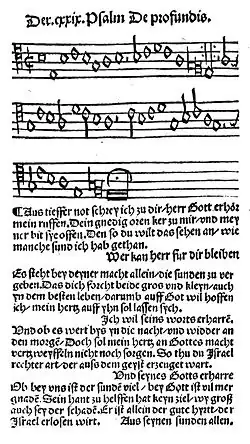 Der .cxxix. Psalm De profundis.
¶Aus tieffer not schrey ich zu dir/herr Gott erhör
mein ruffen. Dein gnedig oren ker zu mir/vnd mey
ner bit sye offen. Den so du wilt das sehen an/wie
manche sund ich hab gethan.
Wer kan herr fur dir bleiben
Es steht bey deyner macht allein/die sunden zu ver
geben. Das dich forcht beide gros vnd kleyn/auch
yn dem besten leben/darumb auff Got wil hoffen
ich/mein hertz auff yhn sol lassen sych.
Ich wil seins worts erharrē.
Vnd ob es wert bys yn die nacht/vnd widder an
den morgē/Doch sol mein hertz an Gottes macht
vertzweyffeln nicht noch sorgen. So thu du Jsrael
rechter art/der aufs dem geyst erzeuget wart.
Vnd seynes Gotts erharre
Ob bey vns ist der sundē viel/bey Gott ist vil mer
gnadē. Sein hant zu helffen hat keyn ziel/wy groß
auch sey der schadē. Er ist allein der gute hyrt/der
Jsrael erlosen wirt. Aus seynen sunden allen.